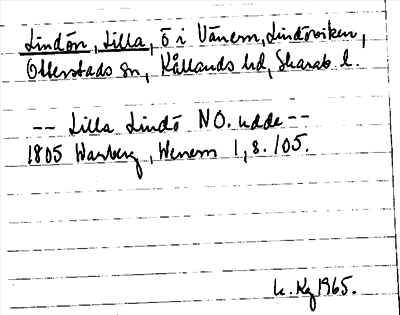 Lindön, Lilla, ö i Vänern, Lindöviken,
Otterstads sn, Kållands hd, Skarab. l.
-- Lilla Lindö NO. udde --
1805 Warberg, Wenern 1, s. 105.
k. Kg 1965.